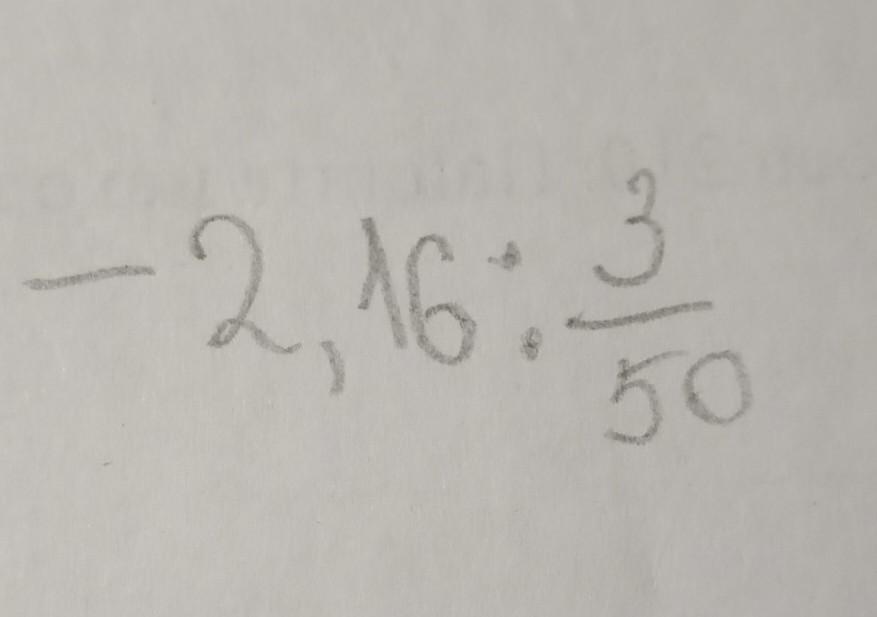 -2,16 : 3/50